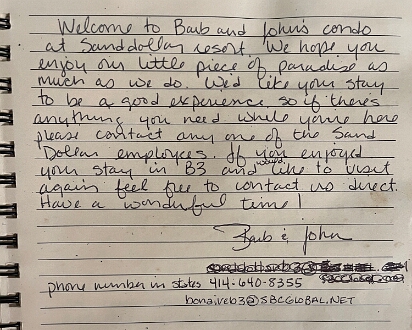 Welcome to Barb and John's condo
at Sanddollar resort. We hope you
enjoy our little piece of paradise as
much as we do. We'd like your stay
to be a good experience, so if there's
anything you need while you're here
please contact any one of the Sand
Dollar employees. If you enjoyed
your stay in B3 and would like to visit
again feel free to contact us direct.
Have a wonderful time!
Barb & John
phone number in states 414-640-8355
bonaireb3@SBCGLOBAL.NET